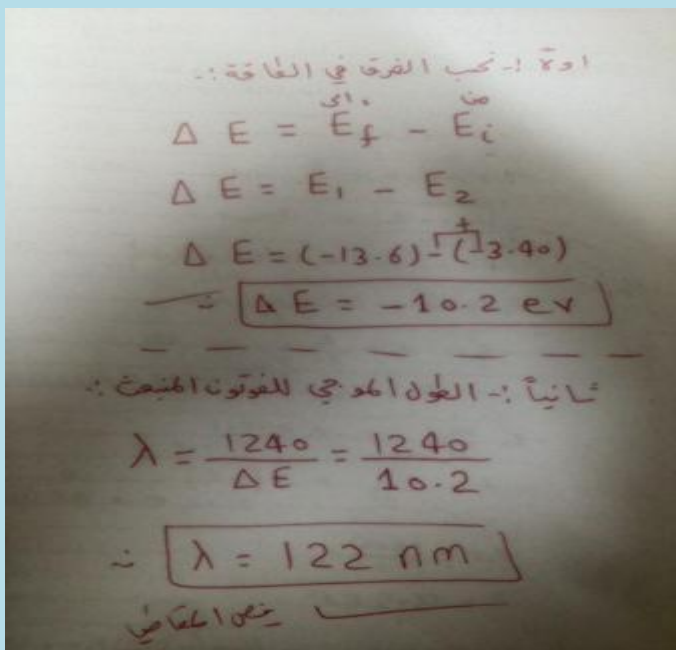 اولاً :- نحسب الفرق في الطاقة :-
الى من
Δ E = E_f - E_i
Δ E = E₁ - E₂
+
Δ E = (-13.6) - (-3.40)
∴ Δ E = -10.2 ev
ثانياً :- الطول الموجي للفوتون المنبعث :-
λ = 1240/ΔE = 1240/10.2
∴ λ = 122 nm